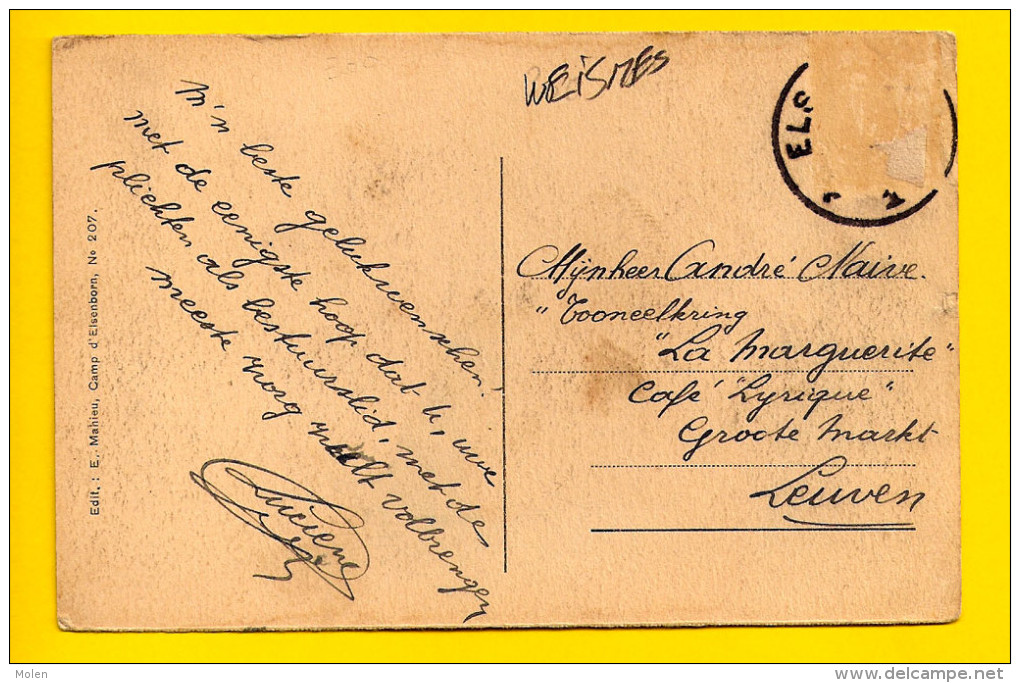 WEISMES
ELS
M'n beste gelukwenschen!
met de eenigste hoop dat U, uwe
plichten als bestuurslid, met de
meeste zorg zult volbrengen
Luciene
Mijnheer André Naive.
"Tooneelkring
"La Marguerite"
Café "Lyrique"
Groote Markt
Leuven
Edit. : E. Mahieu, Camp d'Elsenborn, No 207.
Molen
www.delcampe.net